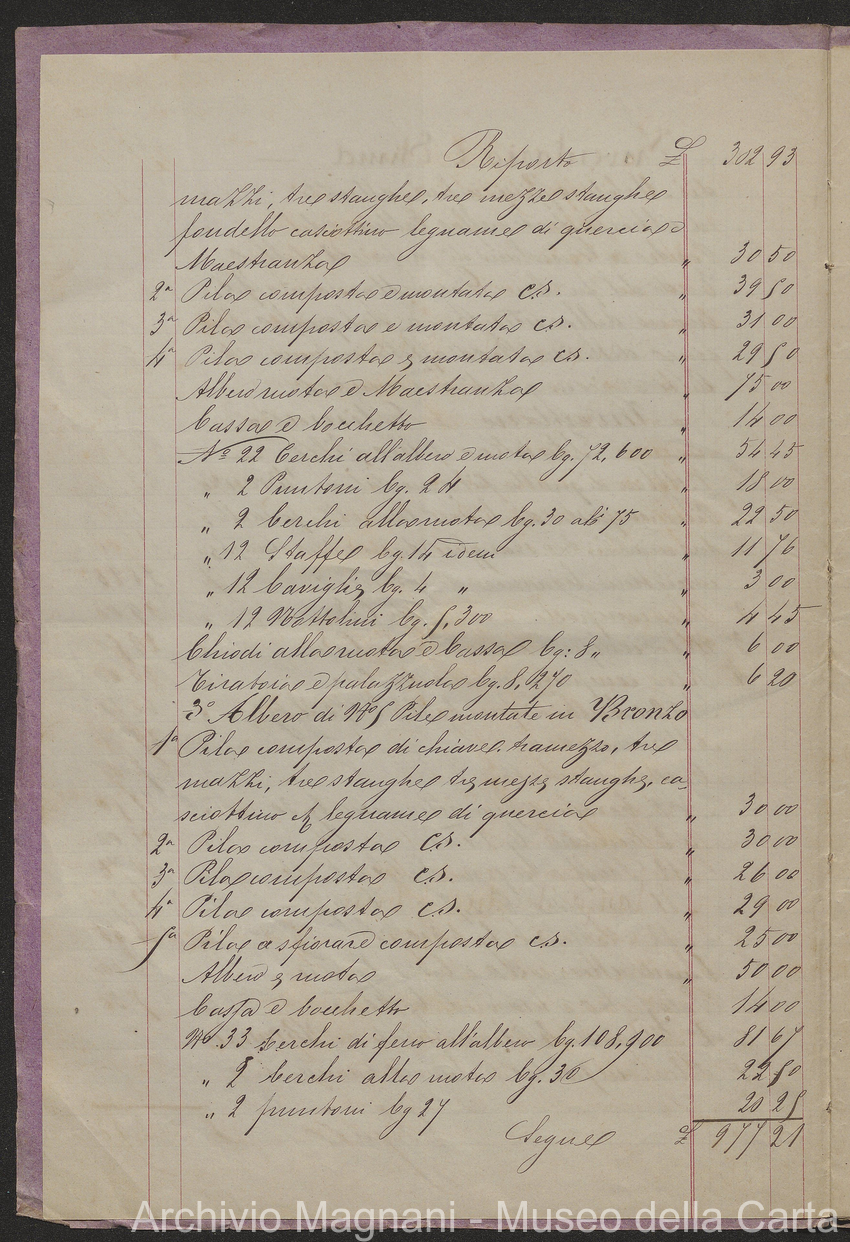 Riporto £ 302 93
mazzi, tre stanghe, tre mezze stanghe
fondello casiottino legname di quercia e
Maestranza " 30 50
2a Pila composta e montata c.s. " 39 50
3a Pila composta e montata c.s. " 31 00
4a Pila composta e montata c.s. " 29 50
Albero ruota e Maestranza " 75 00
Cassa e bocchetto " 14 00
No 22 Cerchi all'albero e ruota Cg. 72,600 " 54 45
" 2 Puntoni Cg. 24 " 18 00
" 2 Cerchi alla ruota Cg. 30 a c. 75 " 22 50
" 12 Staffe Cg. 14 idem " 11 76
" 12 Caviglie Cg. 4 " " 3 00
" 12 Nottolini Cg. 5,300 " 4 45
Chiodi alla ruota e Cassa Cg: 8 " " 6 00
Tiratoia e palazzuola Cg. 8,270 " 6 20
3o Albero di No 5 Pile montate in Bronzo
1a Pila composta di chiave, tramezzo, tre
mazzi, tre stanghe tre mezze stanghe, ca-
sciottino e legname di quercia " 30 00
2a Pila composta c.s. " 30 00
3a Pila composta c.s. " 26 00
4a Pila composta c.s. " 29 00
5a Pila a sfiorare composta c.s. " 25 00
Albero e ruota " 50 00
Cassa e bocchetto 14 00
No 33 Cerchi di ferro all'albero Cg. 108,900 81 67
" 2 Cerchi alla ruota Cg. 30 22 50
" 2 puntoni Cg 27 20 25
Segue £ 977 21
Archivio Magnani - Museo della Carta